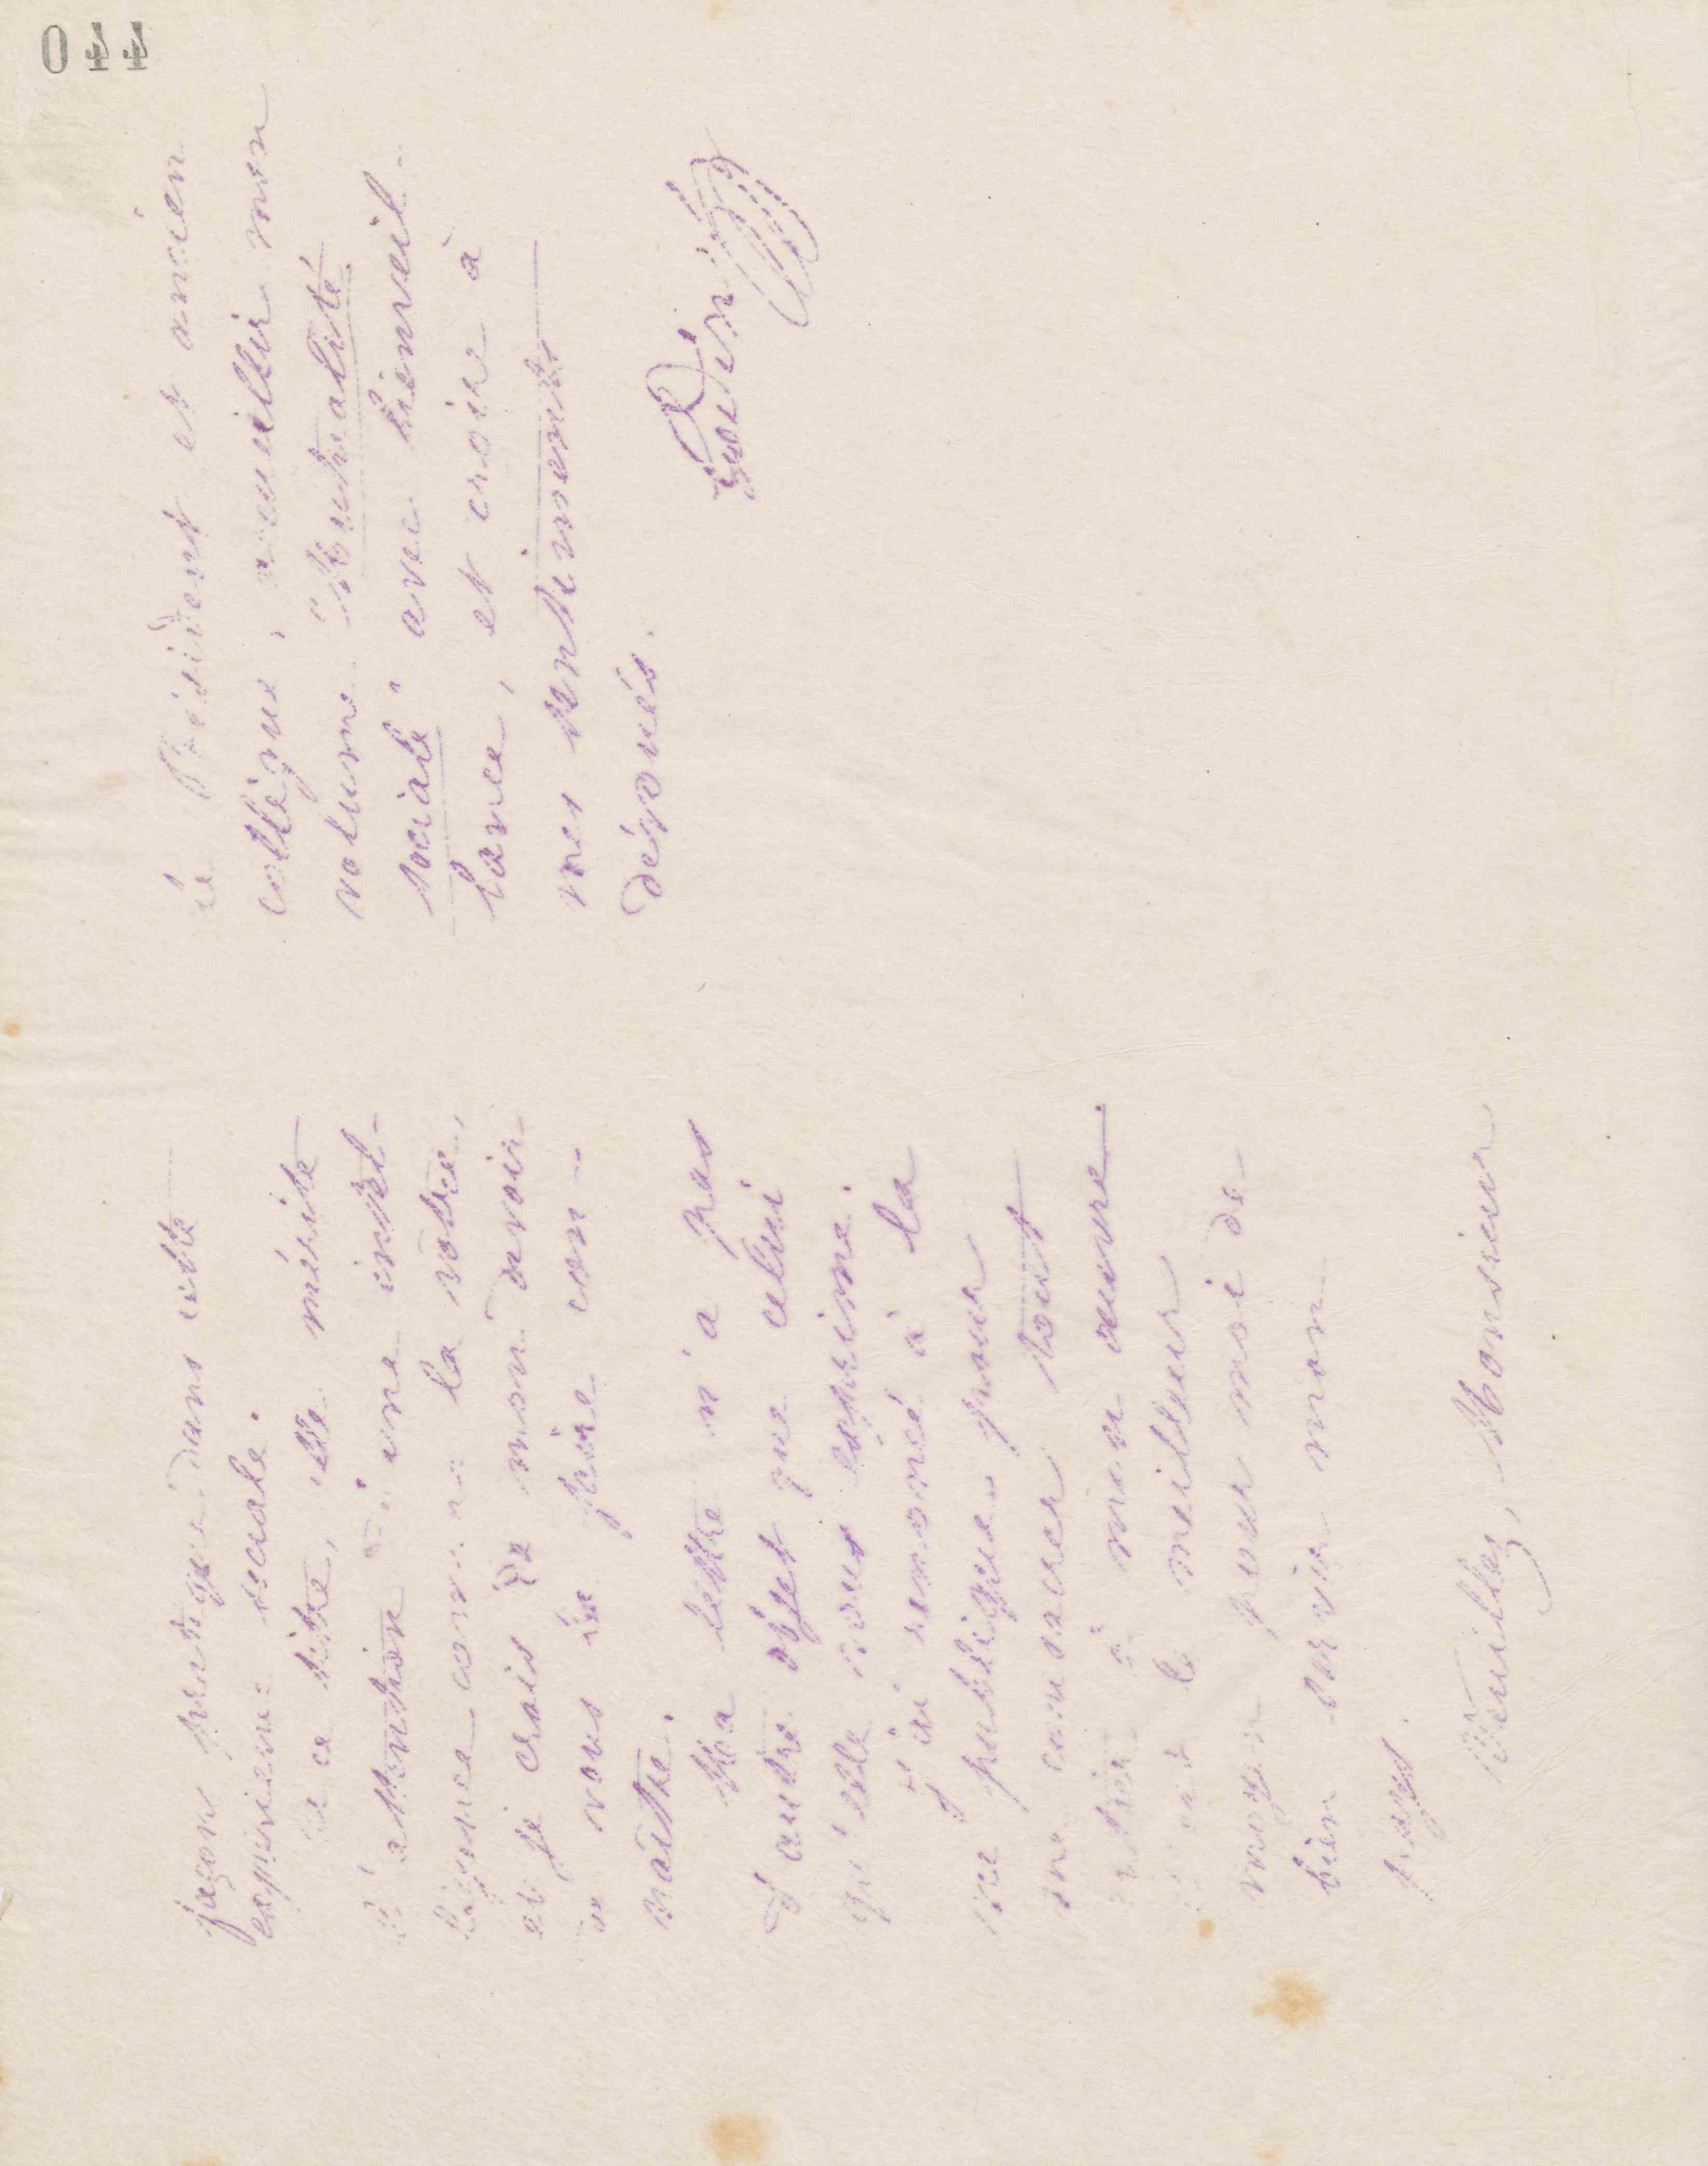 044
façon pratique dans cette
expérience sociale.
à ce titre, elle mérite
l'attention d'une intel-
ligence comme la vôtre,
et je crois de mon devoir
de vous la faire con-
naître.
Ma lettre n'a pas
d'autre objet que celui
qu'elle vous exprime.
J'ai renoncé à la
vie publique pour
me consacrer tout
entier à mon œuvre.
C'est le meilleur
moyen pour moi de
bien servir mon
pays.
Veuillez, Monsieur
le Président et ancien
collègue, accueillir mon
volume "Mutualité
sociale" avec bienveil-
lance, et croire à
mes sentiments
dévoués.
Godin